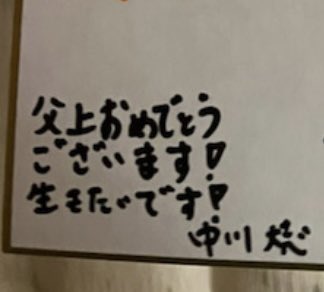 父上おめでとう
ございます!
生きたいです!
中川